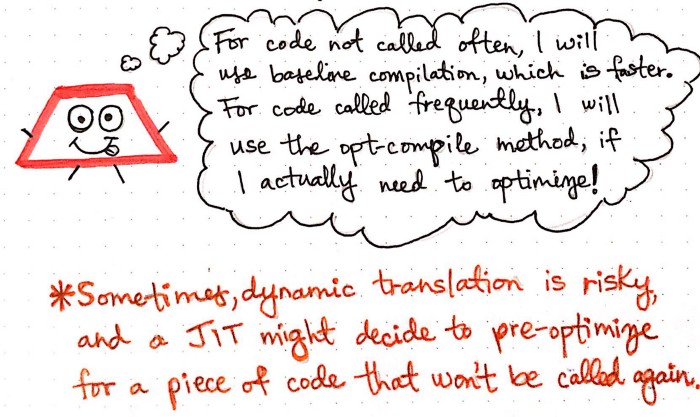 For code not called often, I will
use baseline compilation, which is faster.
For code called frequently, I will
use the opt-compile method, if
I actually need to optimize!
*Sometimes, dynamic translation is risky,
and a JIT might decide to pre-optimize
for a piece of code that won't be called again.